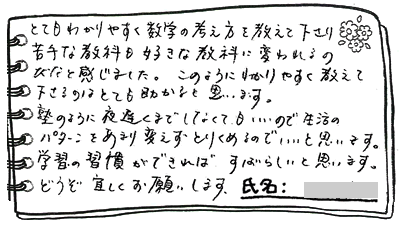 とてもわかりやすく数学の考え方を教えて下さり
苦手な教科も好きな教科に変われるの
だなと感じました。このようにわかりやすく教えて
下さるのはとても助かると思います。
塾のように夜遅くまでしなくてもいいので生活の
パターンをあまり変えずとりくめるのでいいと思います。
学習の習慣ができれば すばらしいと思います。
どうぞ宜しくお願いします、 氏名：